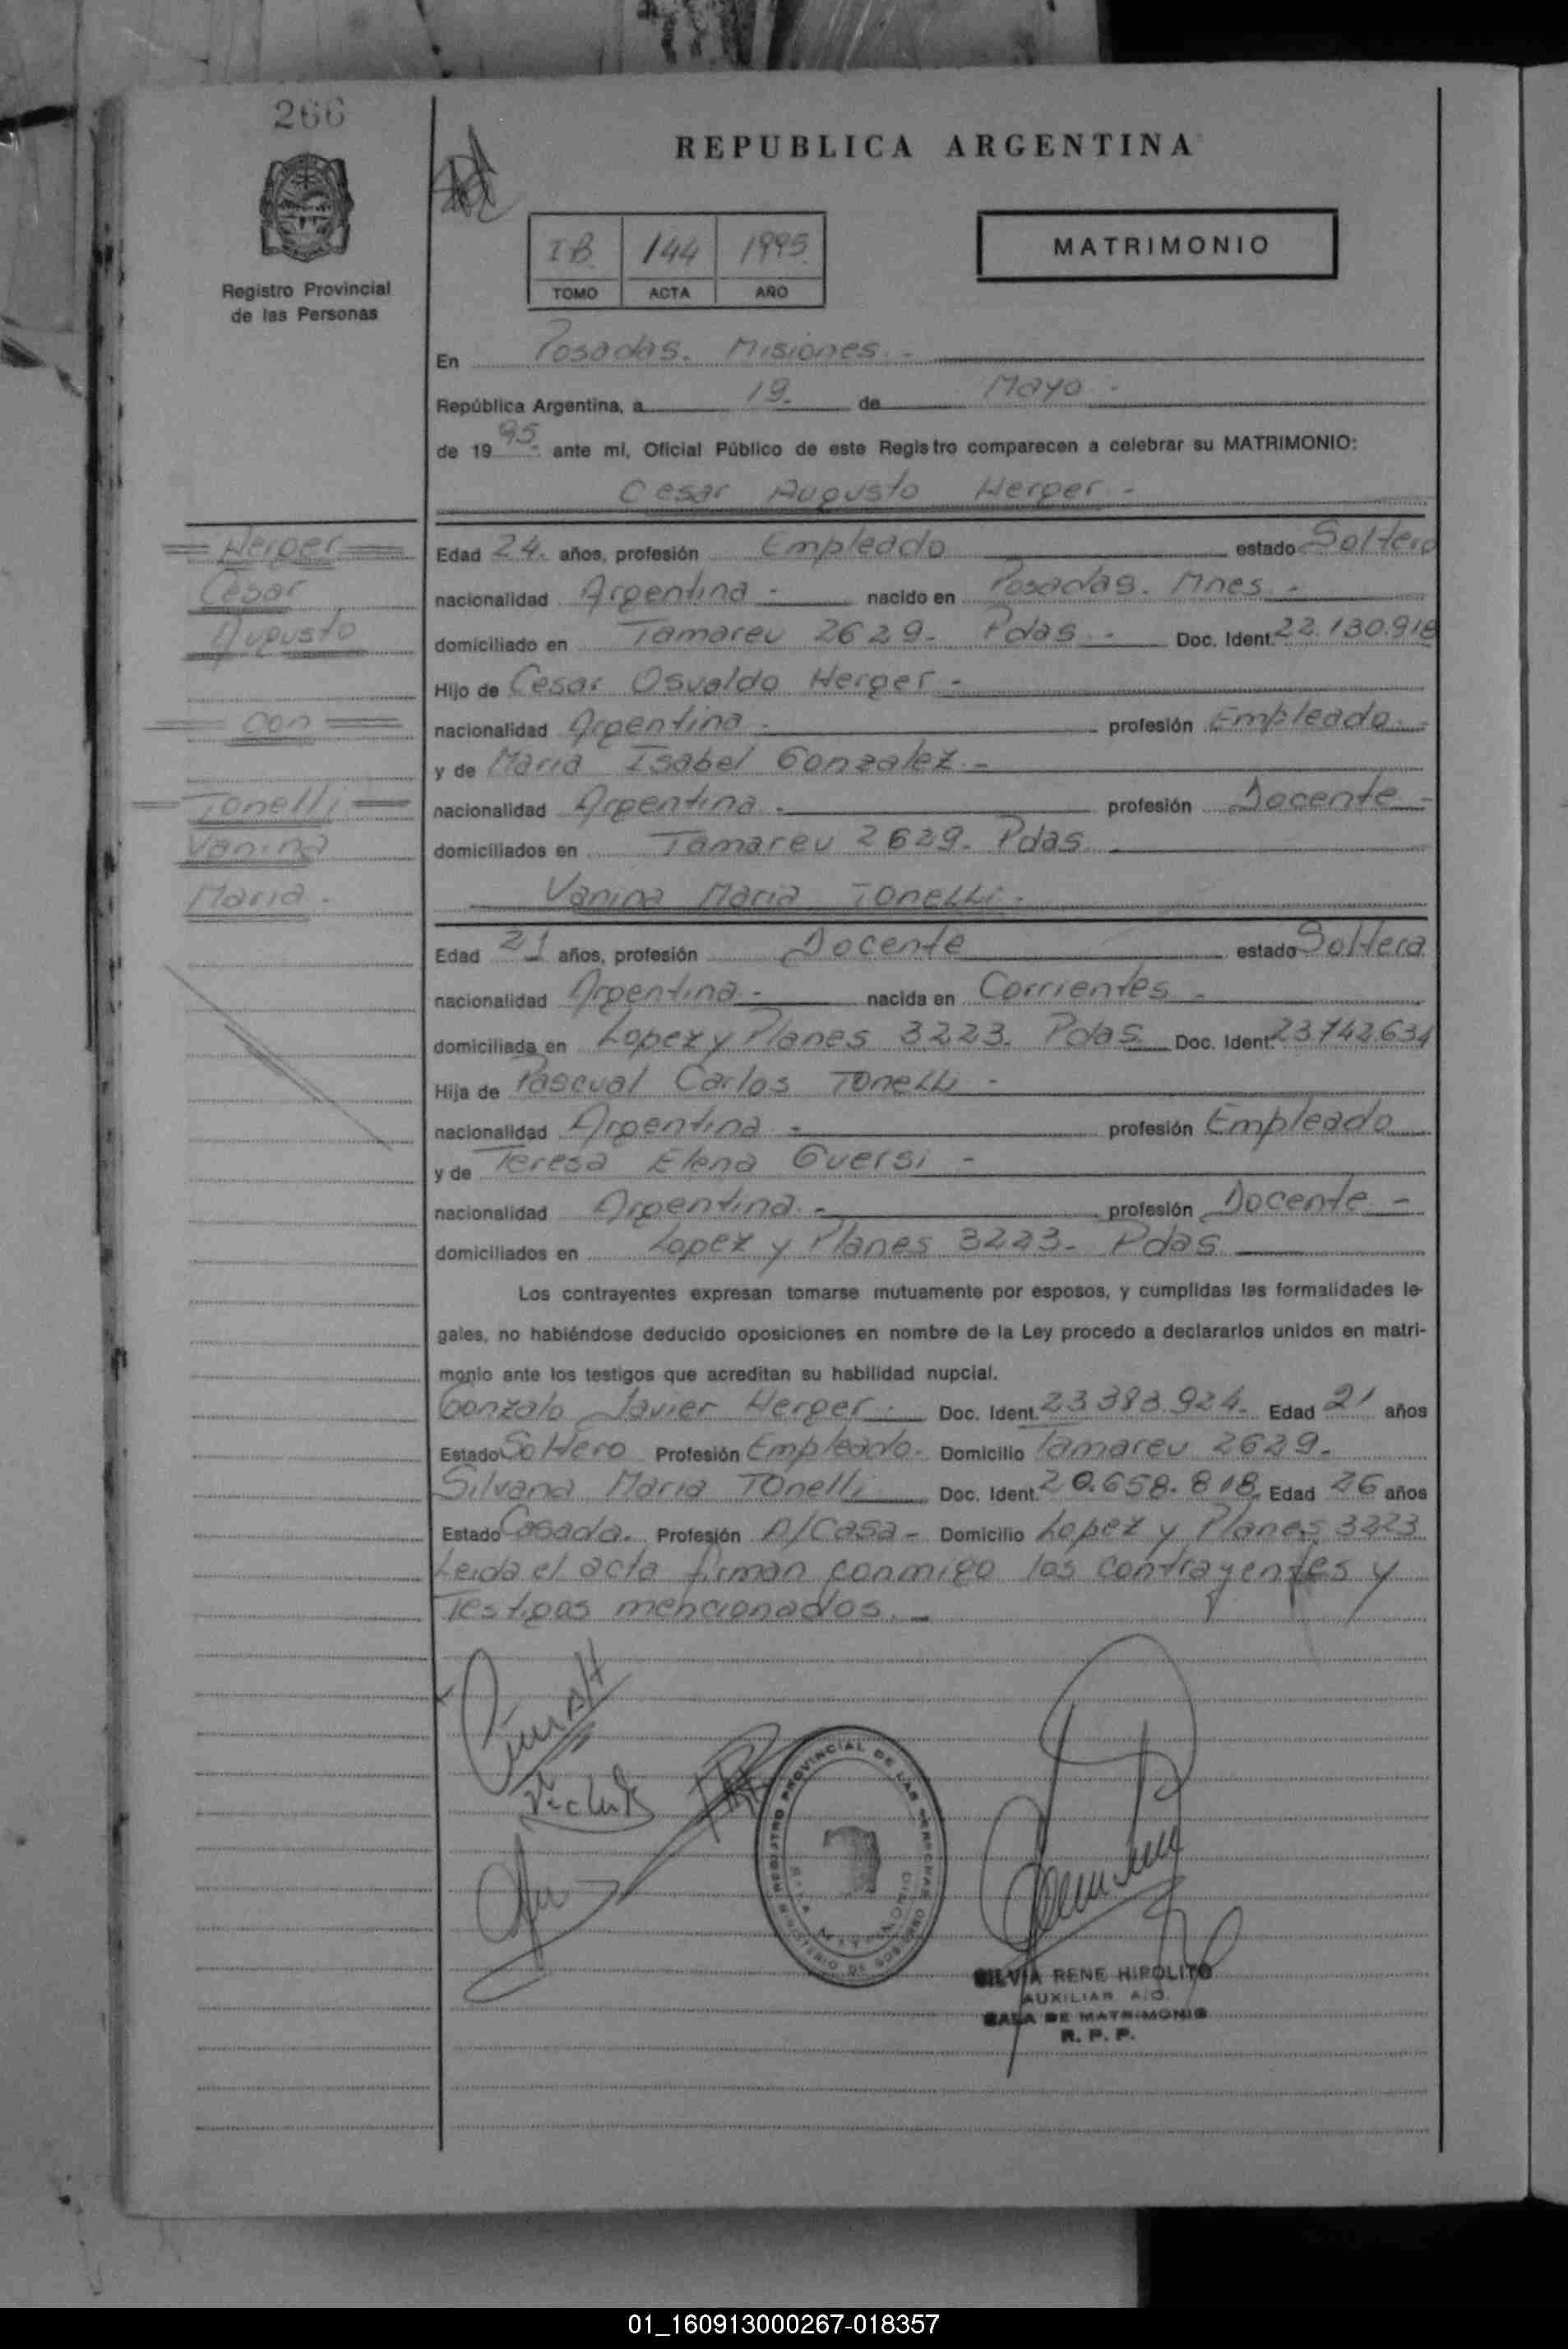 266
REPUBLICA ARGENTINA
Registro Provincial
de las Personas
IB 144 1995
TOMO ACTA AÑO
MATRIMONIO
En Posadas. Misiones.-
República Argentina, a 19. de Mayo.-
de 1995.- ante mi, Oficial Público de este Registro comparecen a celebrar su MATRIMONIO:
Cesar Augusto Herger.-
Herger
Cesar
Augusto
con
Tonelli
Vanina
Maria.
Edad 24. años, profesión Empleado estado Soltero
nacionalidad Argentina.- nacido en Posadas. Mnes.-
domiciliado en Tamareu 2629. Pdas.- Doc. Ident. 22.130.918
Hijo de Cesar Osvaldo Herger.-
nacionalidad Argentina.- profesión Empleado.-
y de Maria Isabel Gonzalez.-
nacionalidad Argentina.- profesión Docente.-
domiciliados en Tamareu 2629. Pdas
Vanina Maria Tonelli.-
Edad 21 años, profesión Docente estado Soltera
nacionalidad Argentina.- nacida en Corrientes.-
domiciliada en Lopez y Planes 3223. Pdas Doc. Ident. 23.742.634
Hija de Pascual Carlos Tonelli-
nacionalidad Argentina.- profesión Empleado
y de Teresa Elena Guersi-
nacionalidad Argentina.- profesión Docente-
domiciliados en Lopez y Planes 3223- Pdas
Los contrayentes expresan tomarse mutuamente por esposos, y cumplidas las formalidades le-
gales, no habiéndose deducido oposiciones en nombre de la Ley procedo a declararlos unidos en matri-
monio ante los testigos que acreditan su habilidad nupcial.
Gonzalo Javier Herger.- Doc. Ident. 23.383.924- Edad 21 años
Estado Soltero Profesión Empleado. Domicilio Tamareu 2629.
Silvana Maria Tonelli Doc. Ident. 20.658.818. Edad 26 años
Estado Casada. Profesión A/Casa- Domicilio Lopez y Planes 3223
Leida el acta firman conmigo los contrayentes y
Testigos mencionados.-
REGISTRO PROVINCIAL DE LAS PERSONAS
MINISTERIO DE GOBIERNO
SILVIA RENE HIPOLITO
AUXILIAR A/C.
SALA DE MATRIMONIO
R. P. P.
01_160913000267-018357